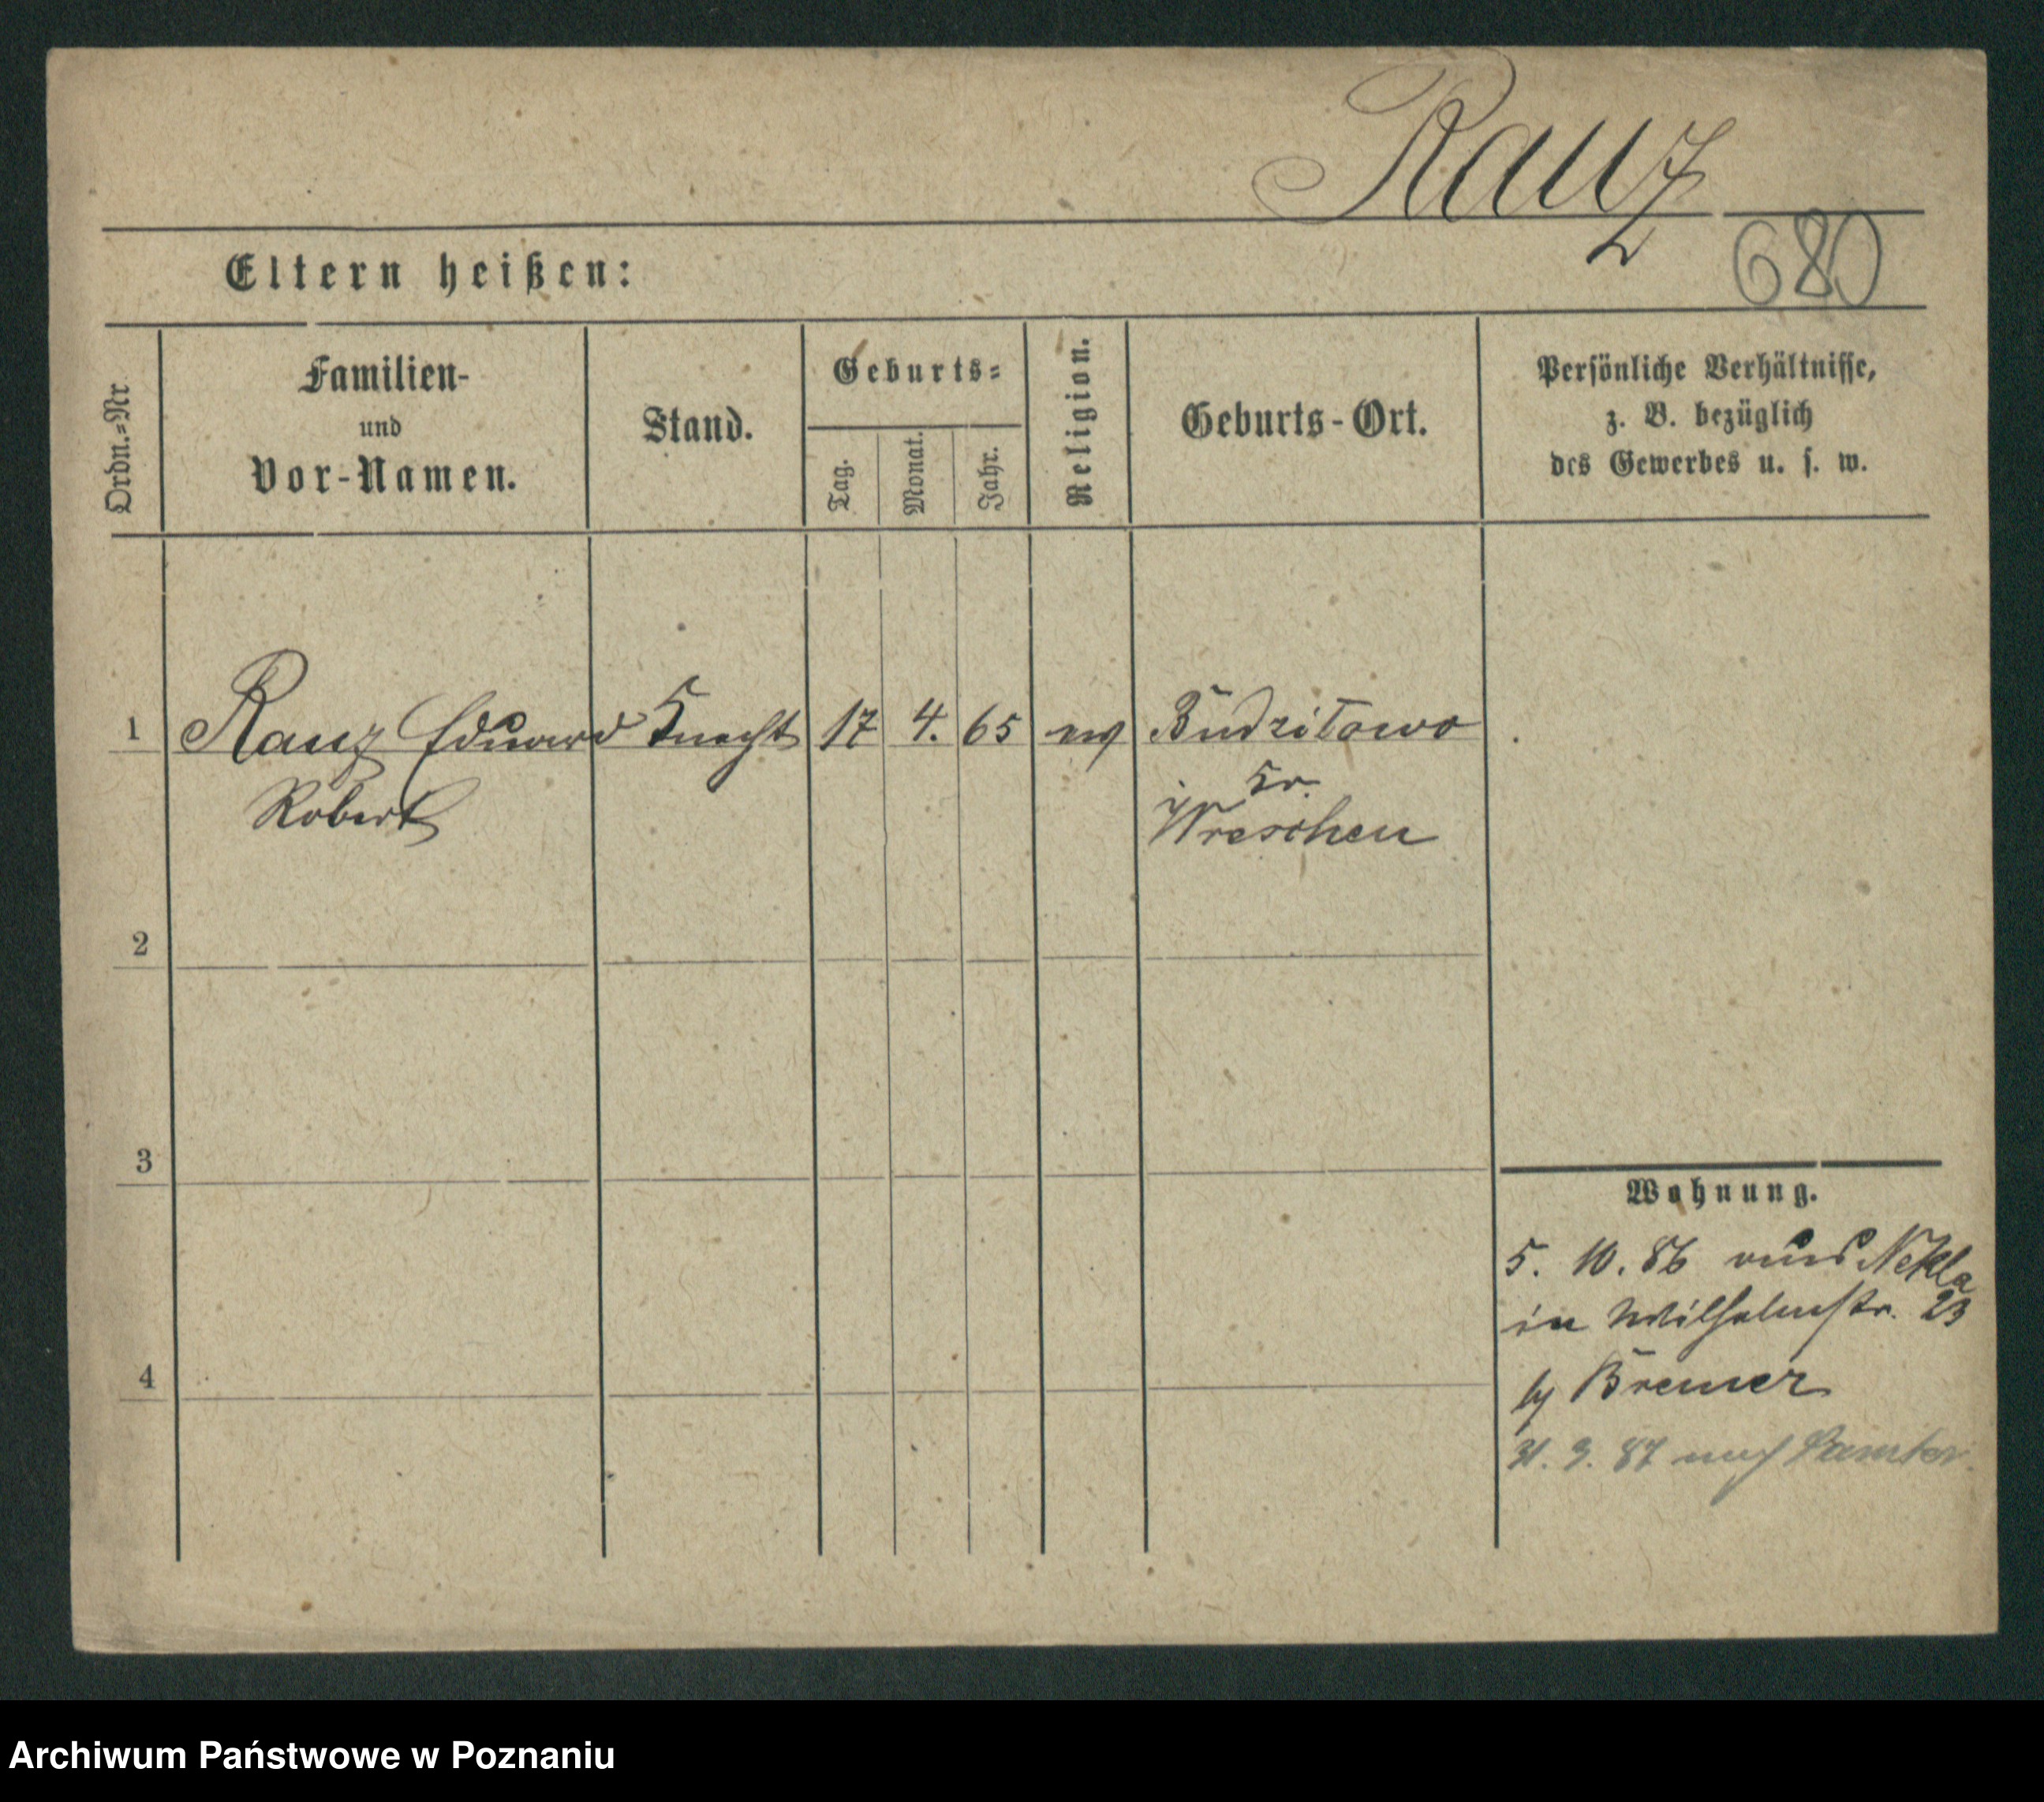 Rauz
680
Eltern heißen:
Ordn.=Nr.
Familien-
und
Vor-Namen.
Stand.
Geburts=
Tag.
Monat.
Jahr.
Religion.
Geburts-Ort.
Persönliche Verhältnisse,
z. B. bezüglich
des Gewerbes u. s. w.
1 Rauz Eduard Knecht 17 4. 65 ev Budzilowo
Robert
Kr.
Wreschen
2
3
4
Wohnung.
5. 10. 86 aus Nekla
in Wilhelmstr. 23
by Bremer
31. 3. 87 nach Samter.
Archiwum Państwowe w Poznaniu